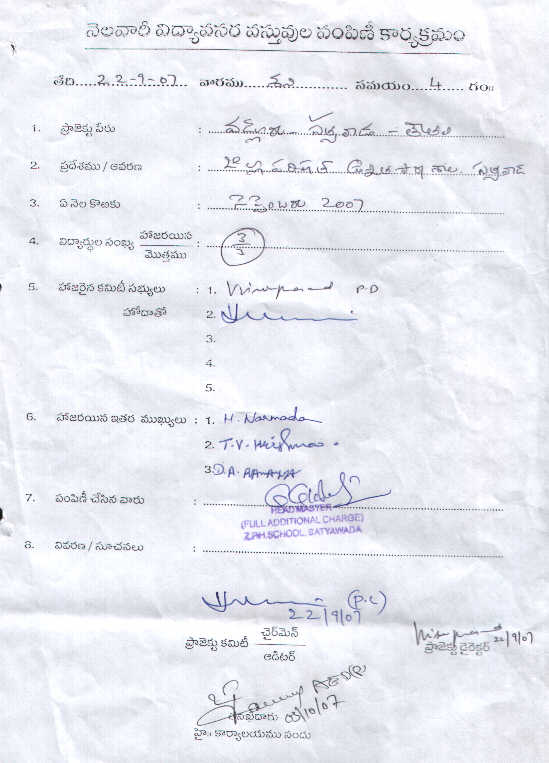 నెలవారీ విద్యావసర వస్తువుల పంపిణీ కార్యక్రమం
తేది.....22-9-07 వారము.....శని............... సమయం....4..... గం॥
1. ప్రాజెక్టు పేరు : సత్యవాడ
2. ప్రదేశము / ఆవరణ : జి.ప్ర.పరిషత్ ఉన్నత పాఠశాల, సత్యవాడ
3. ఏ నెల కొఱకు : సెప్టెంబరు 2007
4. విద్యార్థుల సంఖ్య హాజరయిన / మొత్తము : 3/3
5. హాజరైన కమిటీ సభ్యులు : 1. P.D
హోదాతో 2.
3.
4.
5.
6. హాజరయిన ఇతర ముఖ్యులు : 1. H. Narmada
2. T.V. Krishna
3. D.A. RAMANA
7. పంపిణీ చేసిన వారు :
HEADMASTER
(FULL ADDITIONAL CHARGE)
Z.P.H.SCHOOL, SATYAWADA
8. వివరణ / సూచనలు :
(P.C)
22/9/07
ప్రాజెక్టు కమిటీ చైర్‌మెన్ / ఆడిటర్
22/9/07
ప్రాజెక్టు డైరెక్టర్
03/10/07
తనిఖీదారు
హై॥ కార్యాలయము నందు